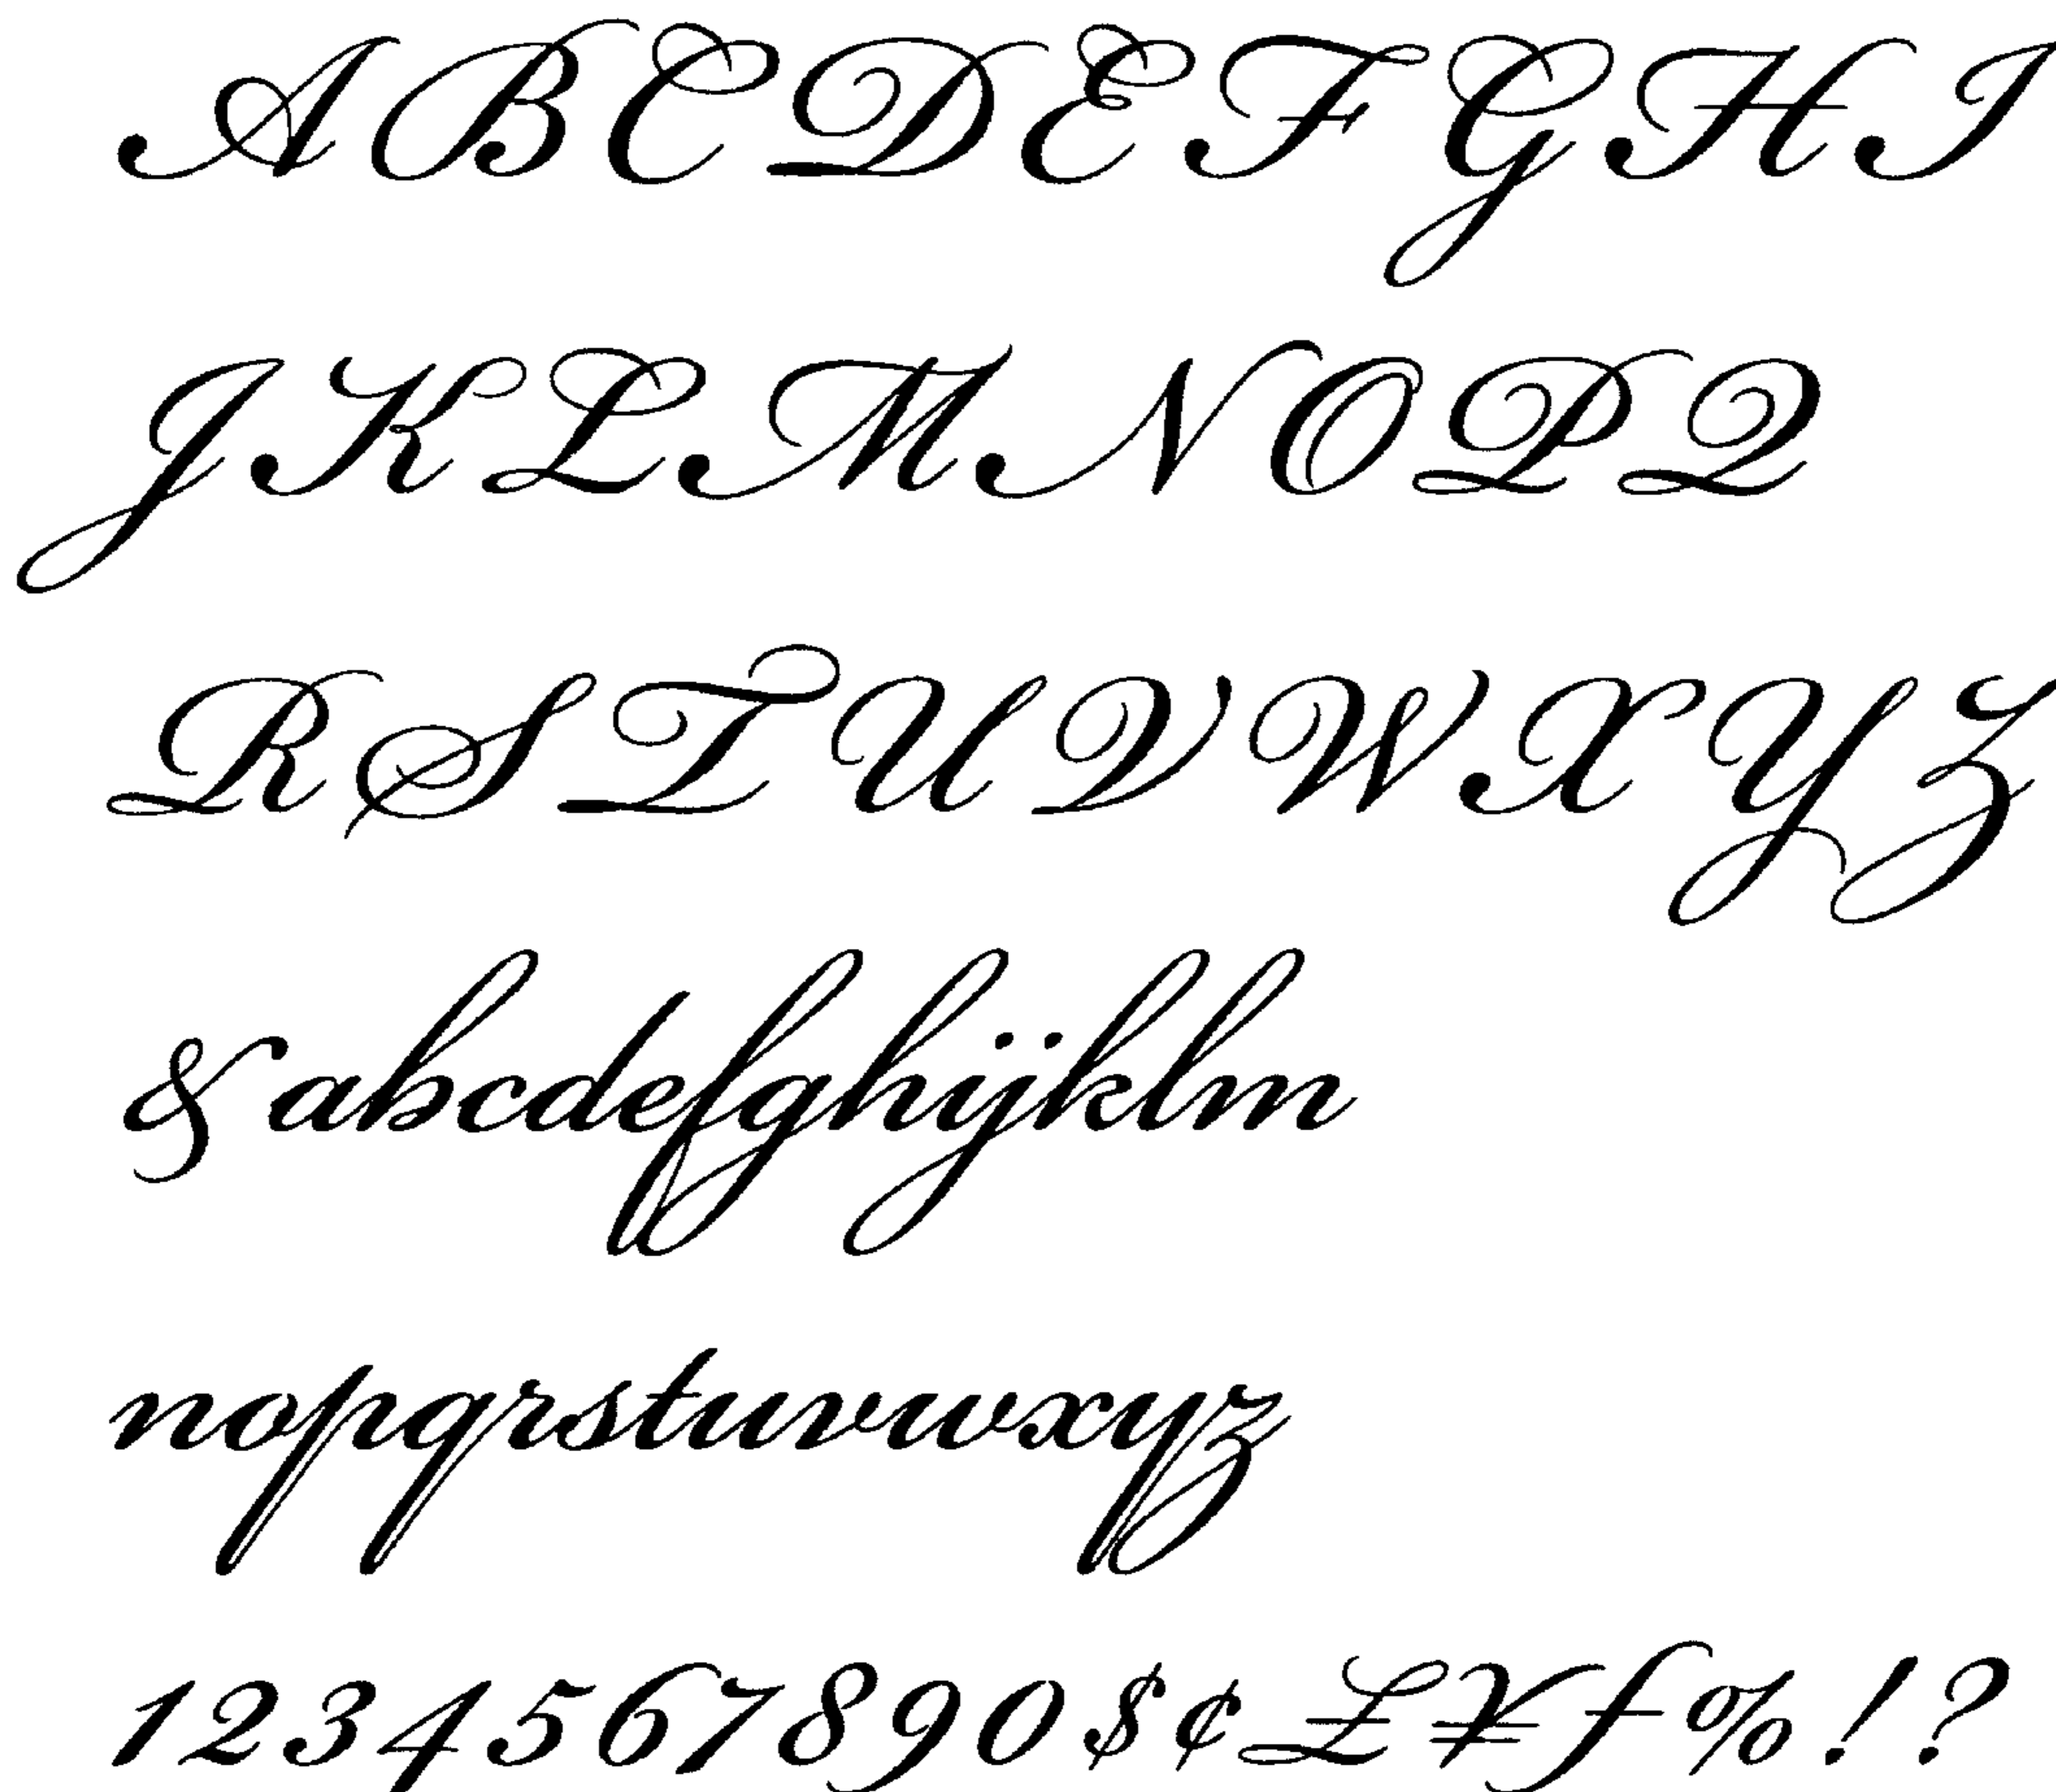 A B C D E F G H I
J K L M N O P Q
R S T U V W X Y Z
& abcdefghijklm
nopqrstuvwxyz
1 2 3 4 5 6 7 8 9 0 $ ¢ £ ¥ ƒ % ! ?